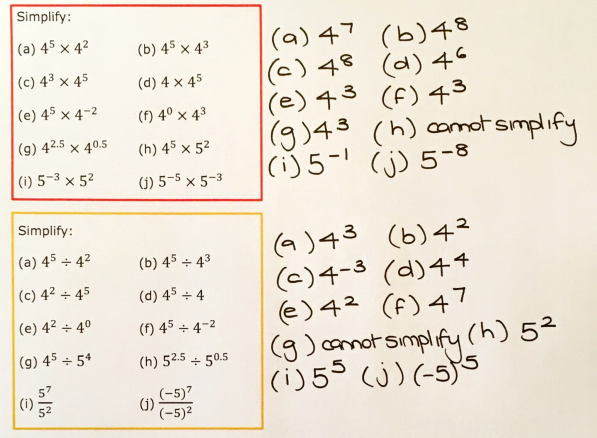 Simplify:
(a) 4⁵ × 4² (b) 4⁵ × 4³
(c) 4³ × 4⁵ (d) 4 × 4⁵
(e) 4⁵ × 4⁻² (f) 4⁰ × 4³
(g) 4²·⁵ × 4⁰·⁵ (h) 4⁵ × 5²
(i) 5⁻³ × 5² (j) 5⁻⁵ × 5⁻³
(a) 4⁷ (b) 4⁸
(c) 4⁸ (d) 4⁶
(e) 4³ (f) 4³
(g) 4³ (h) cannot simplify
(i) 5⁻¹ (j) 5⁻⁸
Simplify:
(a) 4⁵ ÷ 4² (b) 4⁵ ÷ 4³
(c) 4² ÷ 4⁵ (d) 4⁵ ÷ 4
(e) 4² ÷ 4⁰ (f) 4⁵ ÷ 4⁻²
(g) 4⁵ ÷ 5⁴ (h) 5²·⁵ ÷ 5⁰·⁵
(i) 5⁷/5² (j) (−5)⁷/(−5)²
(a) 4³ (b) 4²
(c) 4⁻³ (d) 4⁴
(e) 4² (f) 4⁷
(g) cannot simplify (h) 5²
(i) 5⁵ (j) (−5)⁵